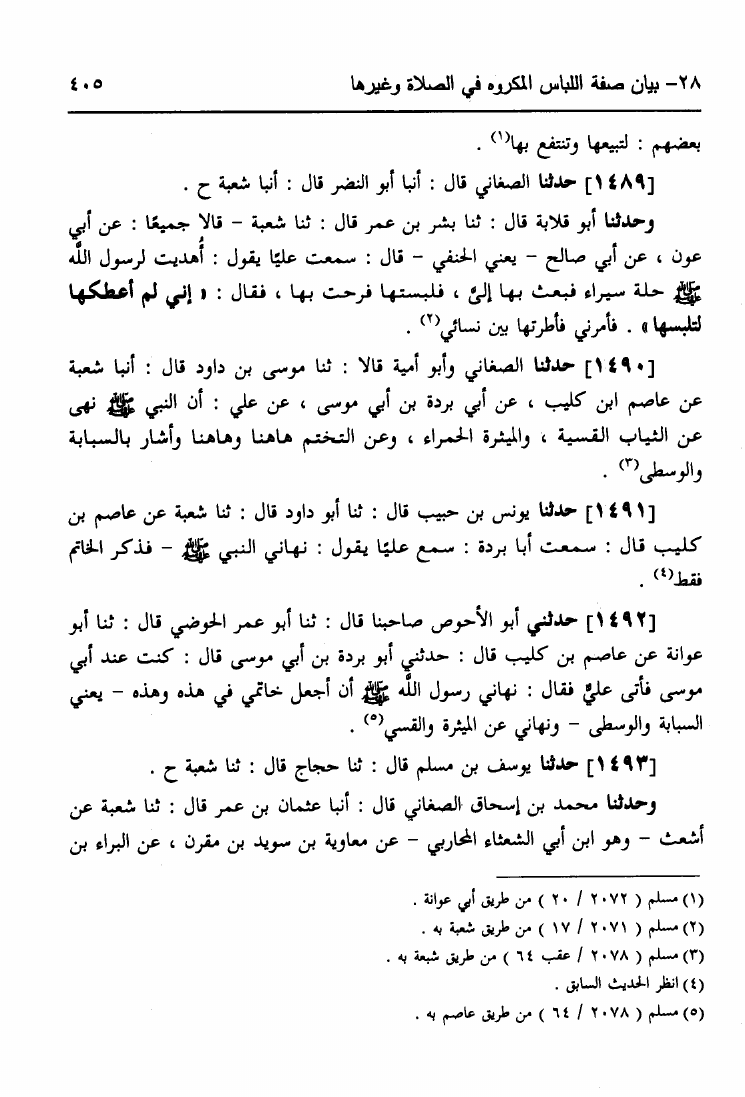 ٢٨- بيان صفة اللباس المكروه في الصلاة وغيرها ٤٠٥
بعضهم : لتبيعها وتنتفع بها(١) .
[١٤٨٩] حدثنا الصغاني قال : أنبا أبو النضر قال : أنبا شعبة ح .
وحدثنا أبو قلابة قال : ثنا بشر بن عمر قال : ثنا شعبة – قالا جميعًا : عن أبي
عون ، عن أبي صالح – يعني الحنفي – قال : سمعت عليًا يقول : أُهديت لرسول اللَّه
ﷺ حلة سيراء فبعث بها إليَّ ، فلبستها فرحت بها ، فقال : « إني لم أعطكها
لتلبسها » . فأمرني فأطرتها بين نسائي(٢) .
[١٤٩٠] حدثنا الصغاني وأبو أمية قالا : ثنا موسى بن داود قال : أنبا شعبة
عن عاصم ابن كليب ، عن أبي بردة بن أبي موسى ، عن علي : أن النبي ﷺ نهى
عن الثياب القسية ، والميثرة الحمراء ، وعن التختم هاهنا وهاهنا وأشار بالسبابة
والوسطى(٣) .
[١٤٩١] حدثنا يونس بن حبيب قال : ثنا أبو داود قال : ثنا شعبة عن عاصم بن
كليب قال : سمعت أبا بردة : سمع عليًا يقول : نهاني النبي ﷺ – فذكر الخاتم
فقط(٤) .
[١٤٩٢] حدثني أبو الأحوص صاحبنا قال : ثنا أبو عمر الحوضي قال : ثنا أبو
عوانة عن عاصم بن كليب قال : حدثني أبو بردة بن أبي موسى قال : كنت عند أبي
موسى فأتى عليٌّ فقال : نهاني رسول اللَّه ﷺ أن أجعل خاتمي في هذه وهذه – يعني
السبابة والوسطى – ونهاني عن الميثرة والقسي(٥) .
[١٤٩٣] حدثنا يوسف بن مسلم قال : ثنا حجاج قال : ثنا شعبة ح .
وحدثنا محمد بن إسحاق الصغاني قال : أنبا عثمان بن عمر قال : ثنا شعبة عن
أشعث – وهو ابن أبي الشعثاء المحاربي – عن معاوية بن سويد بن مقرن ، عن البراء بن
(١) مسلم ( ٢٠٧٢ / ٢٠ ) من طريق أبي عوانة .
(٢) مسلم ( ٢٠٧١ / ١٧ ) من طريق شعبة به .
(٣) مسلم ( ٢٠٧٨ / عقب ٦٤ ) من طريق شبعة به .
(٤) انظر الحديث السابق .
(٥) مسلم ( ٢٠٧٨ / ٦٤ ) من طريق عاصم به .